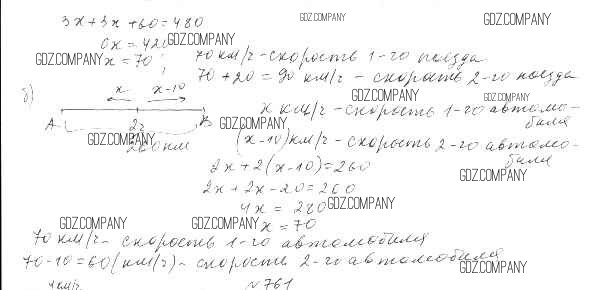 3x+3x+60=480
GDZ.COMPANY GDZ.COMPANY
6x=420 GDZ.COMPANY
GDZ.COMPANY x=70; 70 км/ч-скорость 1-го поезда
70+20=90 км/ч-скорость 2-го поезда
б) x x-10 GDZ.COMPANY GDZ.COMPANY
x км/ч-скорость 1-го автомо-
биля
A 2ч B GDZ.COMPANY
GDZ.COMPANY 260 км (x-10) км/ч-скорость 2-го автомо-
биля
2x+2(x-10)=260
GDZ.COMPANY
2x+2x-20=260
4x=280 GDZ.COMPANY
GDZ.COMPANY GDZ.COMPANY x=70
70 км/ч-скорость 1-го автомобиля
70-10=60(км/ч)-скорость 2-го автомобиля
GDZ.COMPANY
№761